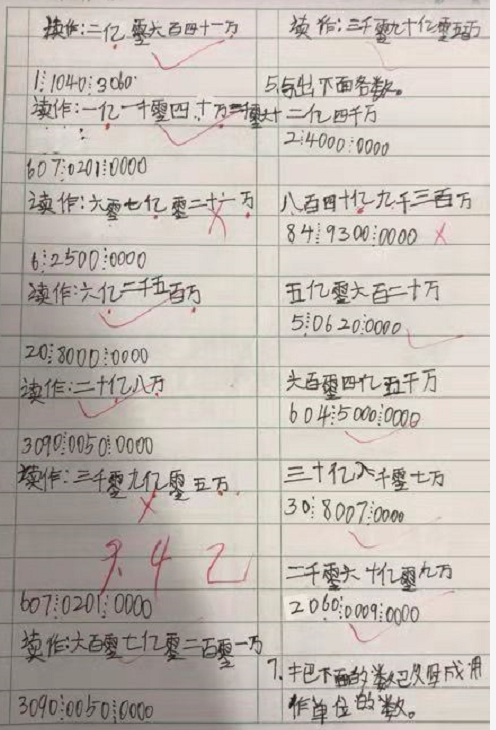 读作:二亿零六百四十一万
1⋮1040⋮3060
读作:一亿一千零四十万三千零六十
607⋮0201⋮0000
读作:六零七亿零二十一万
6⋮2500⋮0000
读作:六亿二千五百万
20⋮8000⋮0000
读作:二十亿八万
3090⋮0050⋮0000
读作:三千零九亿零五万
607⋮0201⋮0000
读作:六百零七亿零二百零一万
3090⋮0050⋮0000
读作:三千零九十亿零五百万
5.写出下面各数。
二亿四千万
2⋮4000⋮0000
八百四十亿九千三百万
84⋮9300⋮0000
五亿零六百二十万
5⋮0620⋮0000
六百零四亿五千万
604⋮5000⋮0000
三十亿八千零七万
30⋮8007⋮0000
二千零六十亿零九万
2060⋮0009⋮0000
7.把下面的数改写成用
作单位的数。